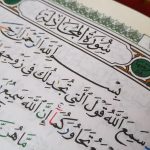 سُورَةُ المُجَادلَةِ
بِسْمِ اللَّهِ
سَمِعَ اللَّهُ قَوْلَ الَّتِي تُجَٰدِلُكَ فِي زَوْجِهَا
تَحَاوُرَكُمَا إِنَّ اللَّهَ سَمِيعٌ
مَّا هُنَّ